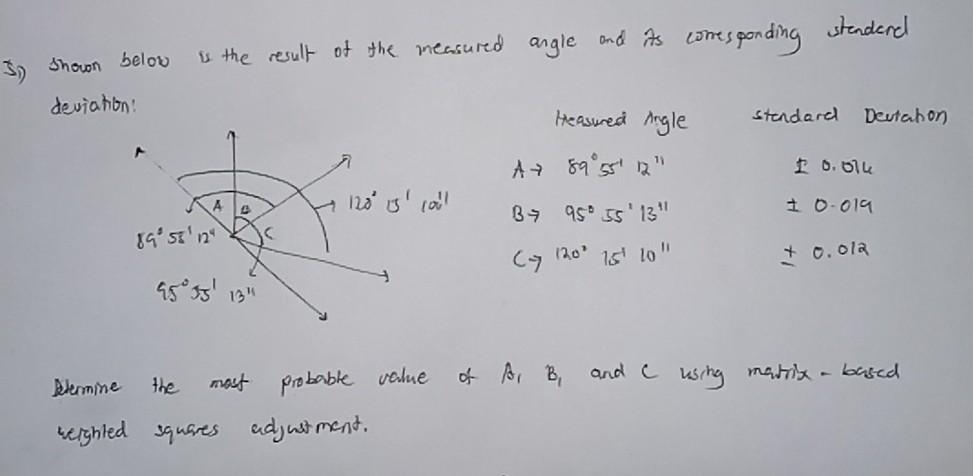 Shown below is the result of the measured angle and its corresponding standard
deviation:
Measured Angle standard Deviation
A → 89° 55' 12" ± 0.014
B → 95° 55' 13" ± 0.019
C → 120° 15' 10" ± 0.012
A B C
120° 15' 10"
89° 55' 12"
95° 55' 13"
Determine the most probable value of A, B, and C using matrix - based
weighted squares adjustment.